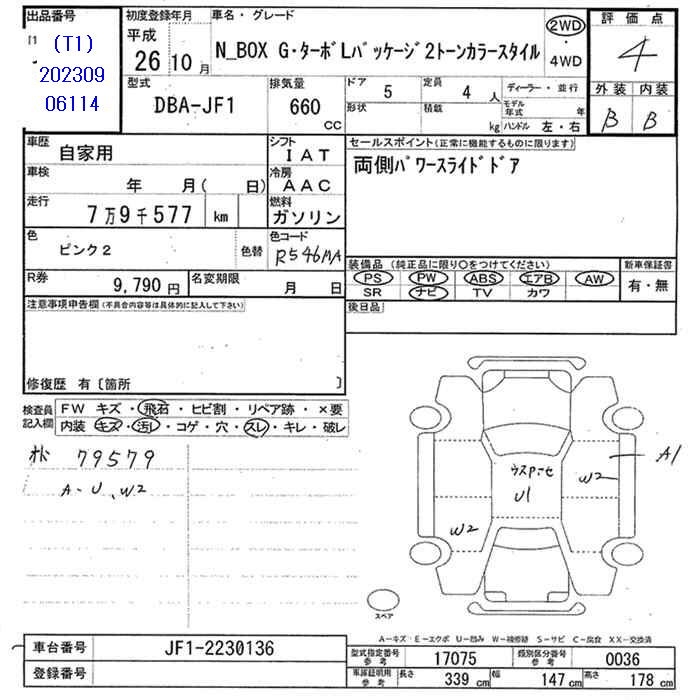 出品番号
(T1)
202309
06114
初度登録年月
平成
26 10 月
車名・グレード
N_BOX G・ターボLパッケージ2トーンカラースタイル
2WD
・
4WD
評価点
4
外装 内装
B B
型式
DBA-JF1
排気量
660
CC
ドア
5
定員
4 人
ディーラー・並行
形状
積載
kg
モデル年式
年
ハンドル 左・右
車歴
自家用
シフト
IAT
車検
年 月( 日)
冷房
AAC
走行
7万9千577 km
燃料
ガソリン
色
ピンク2
色替
色コード
R546MA
R券
9,790 円
名変期限
月 日
セールスポイント(正常に機能するものに限ります)
両側パワースライドドア
装備品 (純正品に限り○をつけてください)
PS PW ABS エアB AW
SR ナビ TV カワ
新車保証書
有・無
注意事項申告欄(不具合内容等は具体的に記入して下さい)
後日品
修復歴 有〔箇所 〕
検査員
記入欄
FW キズ・飛石・ヒビ割・リペア跡・×要
内装 キズ・汚レ・コゲ・穴・スレ・キレ・破レ
79579
A-U、W2
A1
W2
U1
W2
スペア
A-キズ E-エクボ U-凹み W-補修跡 S-サビ C-腐食 XX-交換済
車台番号
JF1-2230136
登録番号
型式指定番号
参考
17075
類別区分番号
参考
0036
車庫証明用
参考
長さ
339 cm
幅
147 cm
高さ
178 cm